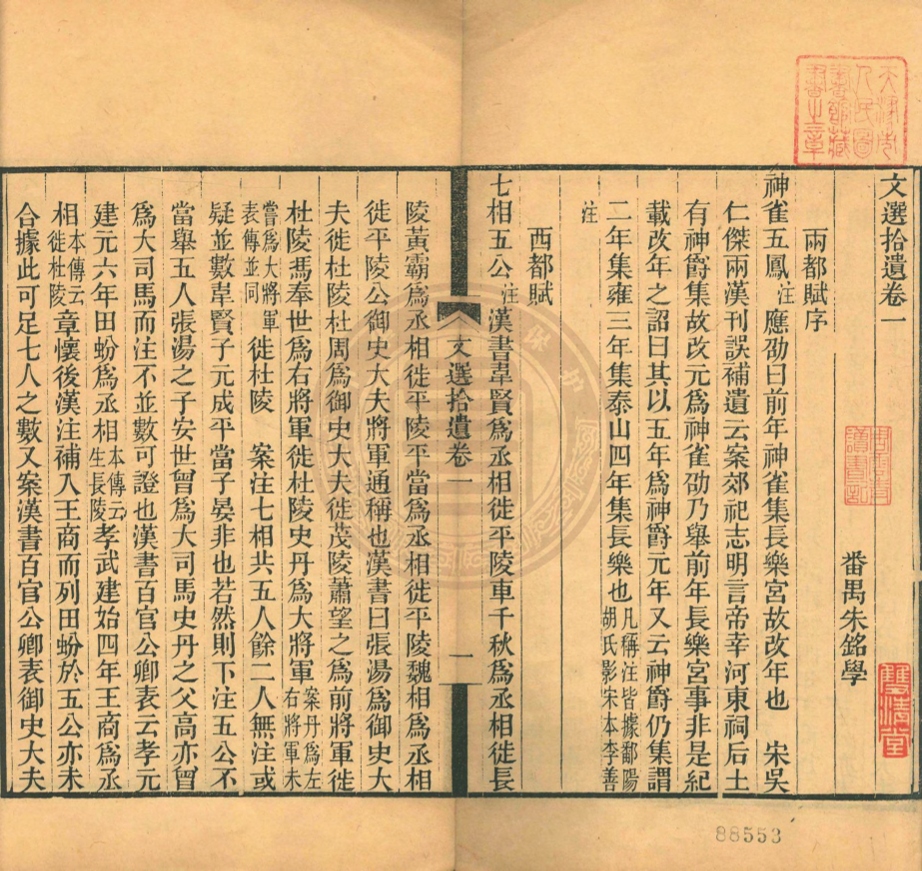 文選拾遺卷一
番禺朱銘學
兩都賦序
神雀五鳳注應劭曰前年神雀集長樂宮故改年也 宋吳
仁傑兩漢刊誤補遺云案郊祀志明言帝幸河東祠后土
有神爵集故改元為神雀劭乃舉前年長樂宮事非是紀
載改年之詔曰其以五年為神爵元年又云神爵仍集謂
二年集雍三年集泰山四年集長樂也凡稱注皆據鄱陽胡氏影宋本李善
注
西都賦
七相五公注漢書韋賢為丞相徙平陵車千秋為丞相徙長
文選拾遺卷一
一
陵黃霸為丞相徙平陵平當為丞相徙平陵魏相為丞相
徙平陵公御史大夫將軍通稱也漢書曰張湯為御史大
夫徙杜陵杜周為御史大夫徙茂陵蕭望之為前將軍徙
杜陵馮奉世為右將軍徙杜陵史丹為大將軍案丹為左右將軍未
嘗為大將軍表傳並同徙杜陵 案注七相共五人餘二人無注或
疑並數韋賢子元成平當子晏非也若然則下注五公不
當舉五人張湯之子安世曾為大司馬史丹之父高亦曾
為大司馬而注不並數可證也漢書百官公卿表云孝元
建元六年田蚡為丞相本傳云生長陵孝武建始四年王商為丞
相本傳云徙杜陵章懷後漢注補入王商而列田蚡於五公亦未
合據此可足七人之數又案漢書百官公卿表御史大夫
天津市人民圖書館藏書之章
雙清堂
88553